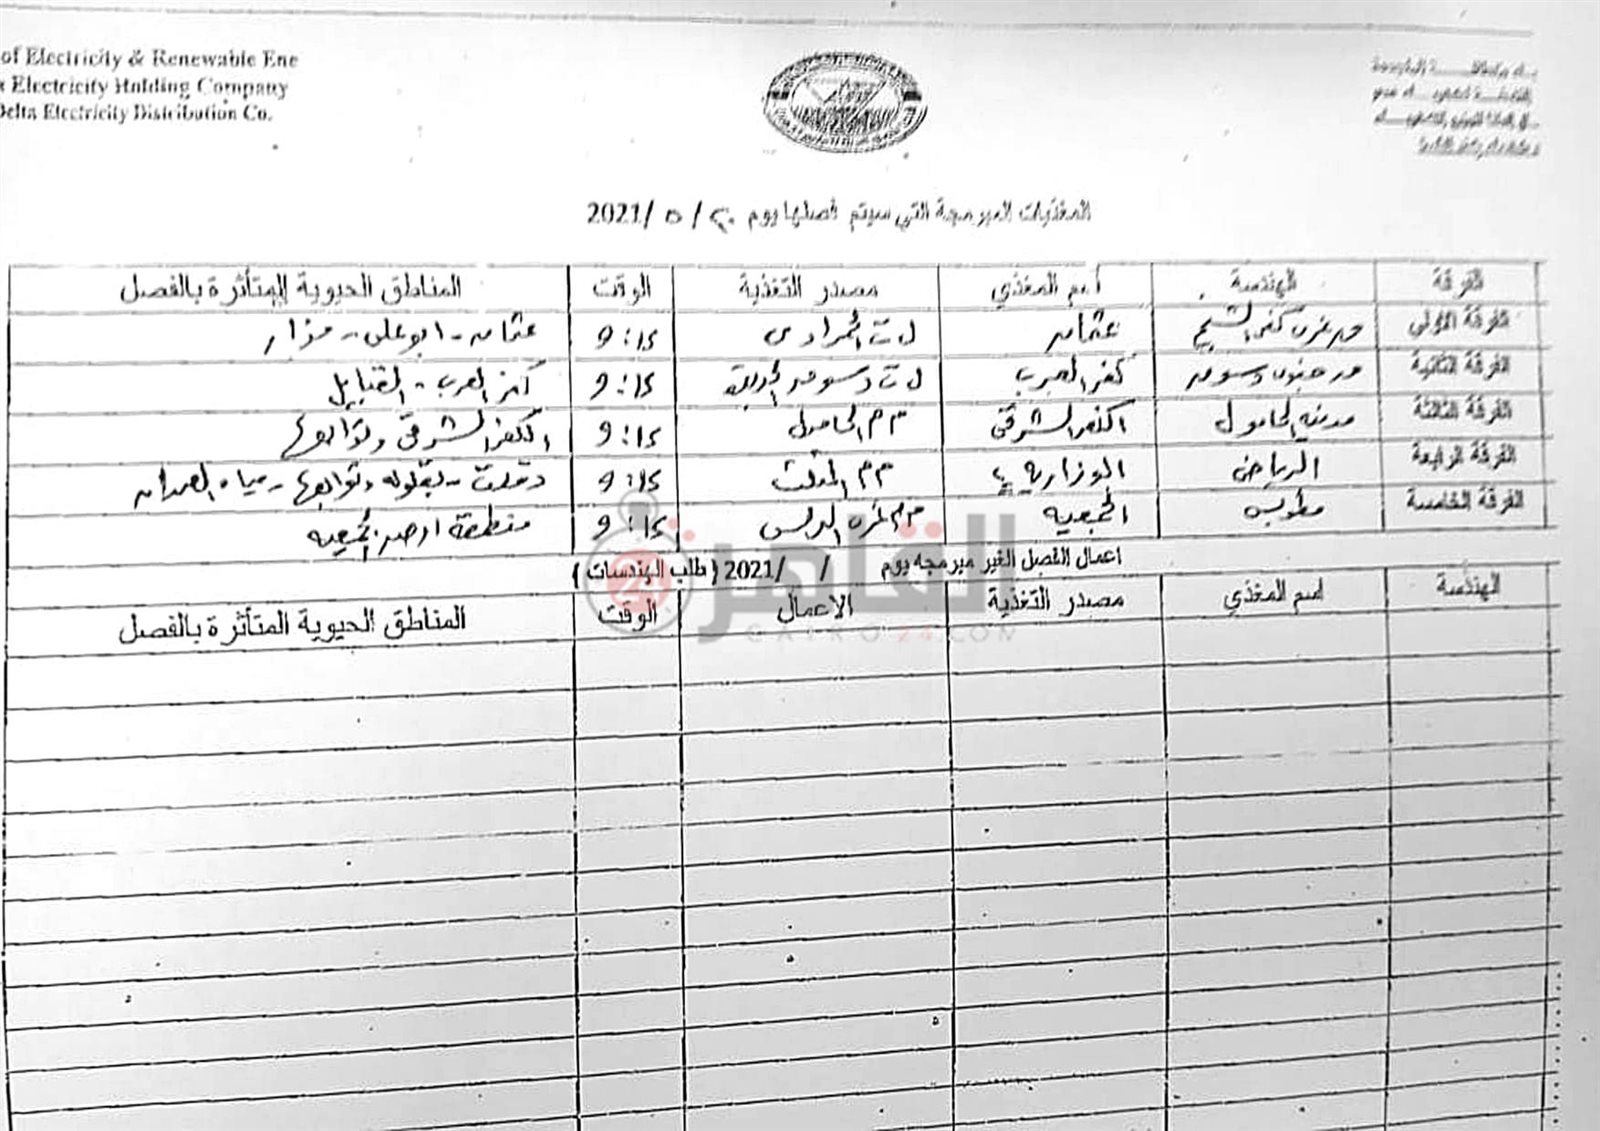 of Electricity & Renewable Ene
Electricity Holding Company
Delta Electricity Distribution Co.
المغذيات المبرمجة التي سيتم فصلها يوم ٢٠ / ٥ /2021
الفرقة الهندسة اسم المغذي مصدر التغذية الوقت المناطق الحيوية المتأثرة بالفصل
الفرقة الاولى غرب كفر الشيخ عثمان المرادى 9:15 عثمان - ابو على - مزار
الفرقة الثانية كفر العرب 9:15 كفر العرب - القبايل
الفرقة الثالثة مدينة الحامول الكفر الشرقى م م الحامول 9:15 الكفر الشرقى وتوابعها
الفرقة الرابعة الرياض الوزارية م م المثلث 9:15 دقلت - وتوابعها - مياه
الفرقة الخامسة مطوبس الجمعيه م م غرب البرلس 9:15 منطقة ارض الجمعيه
اعمال الفصل الغير مبرمجه يوم / /2021 ( طلب الهندسات )
الهندسة اسم المغذي مصدر التغذية الاعمال الوقت المناطق الحيوية المتأثرة بالفصل
القاهرة 24
CAIRO24.COM